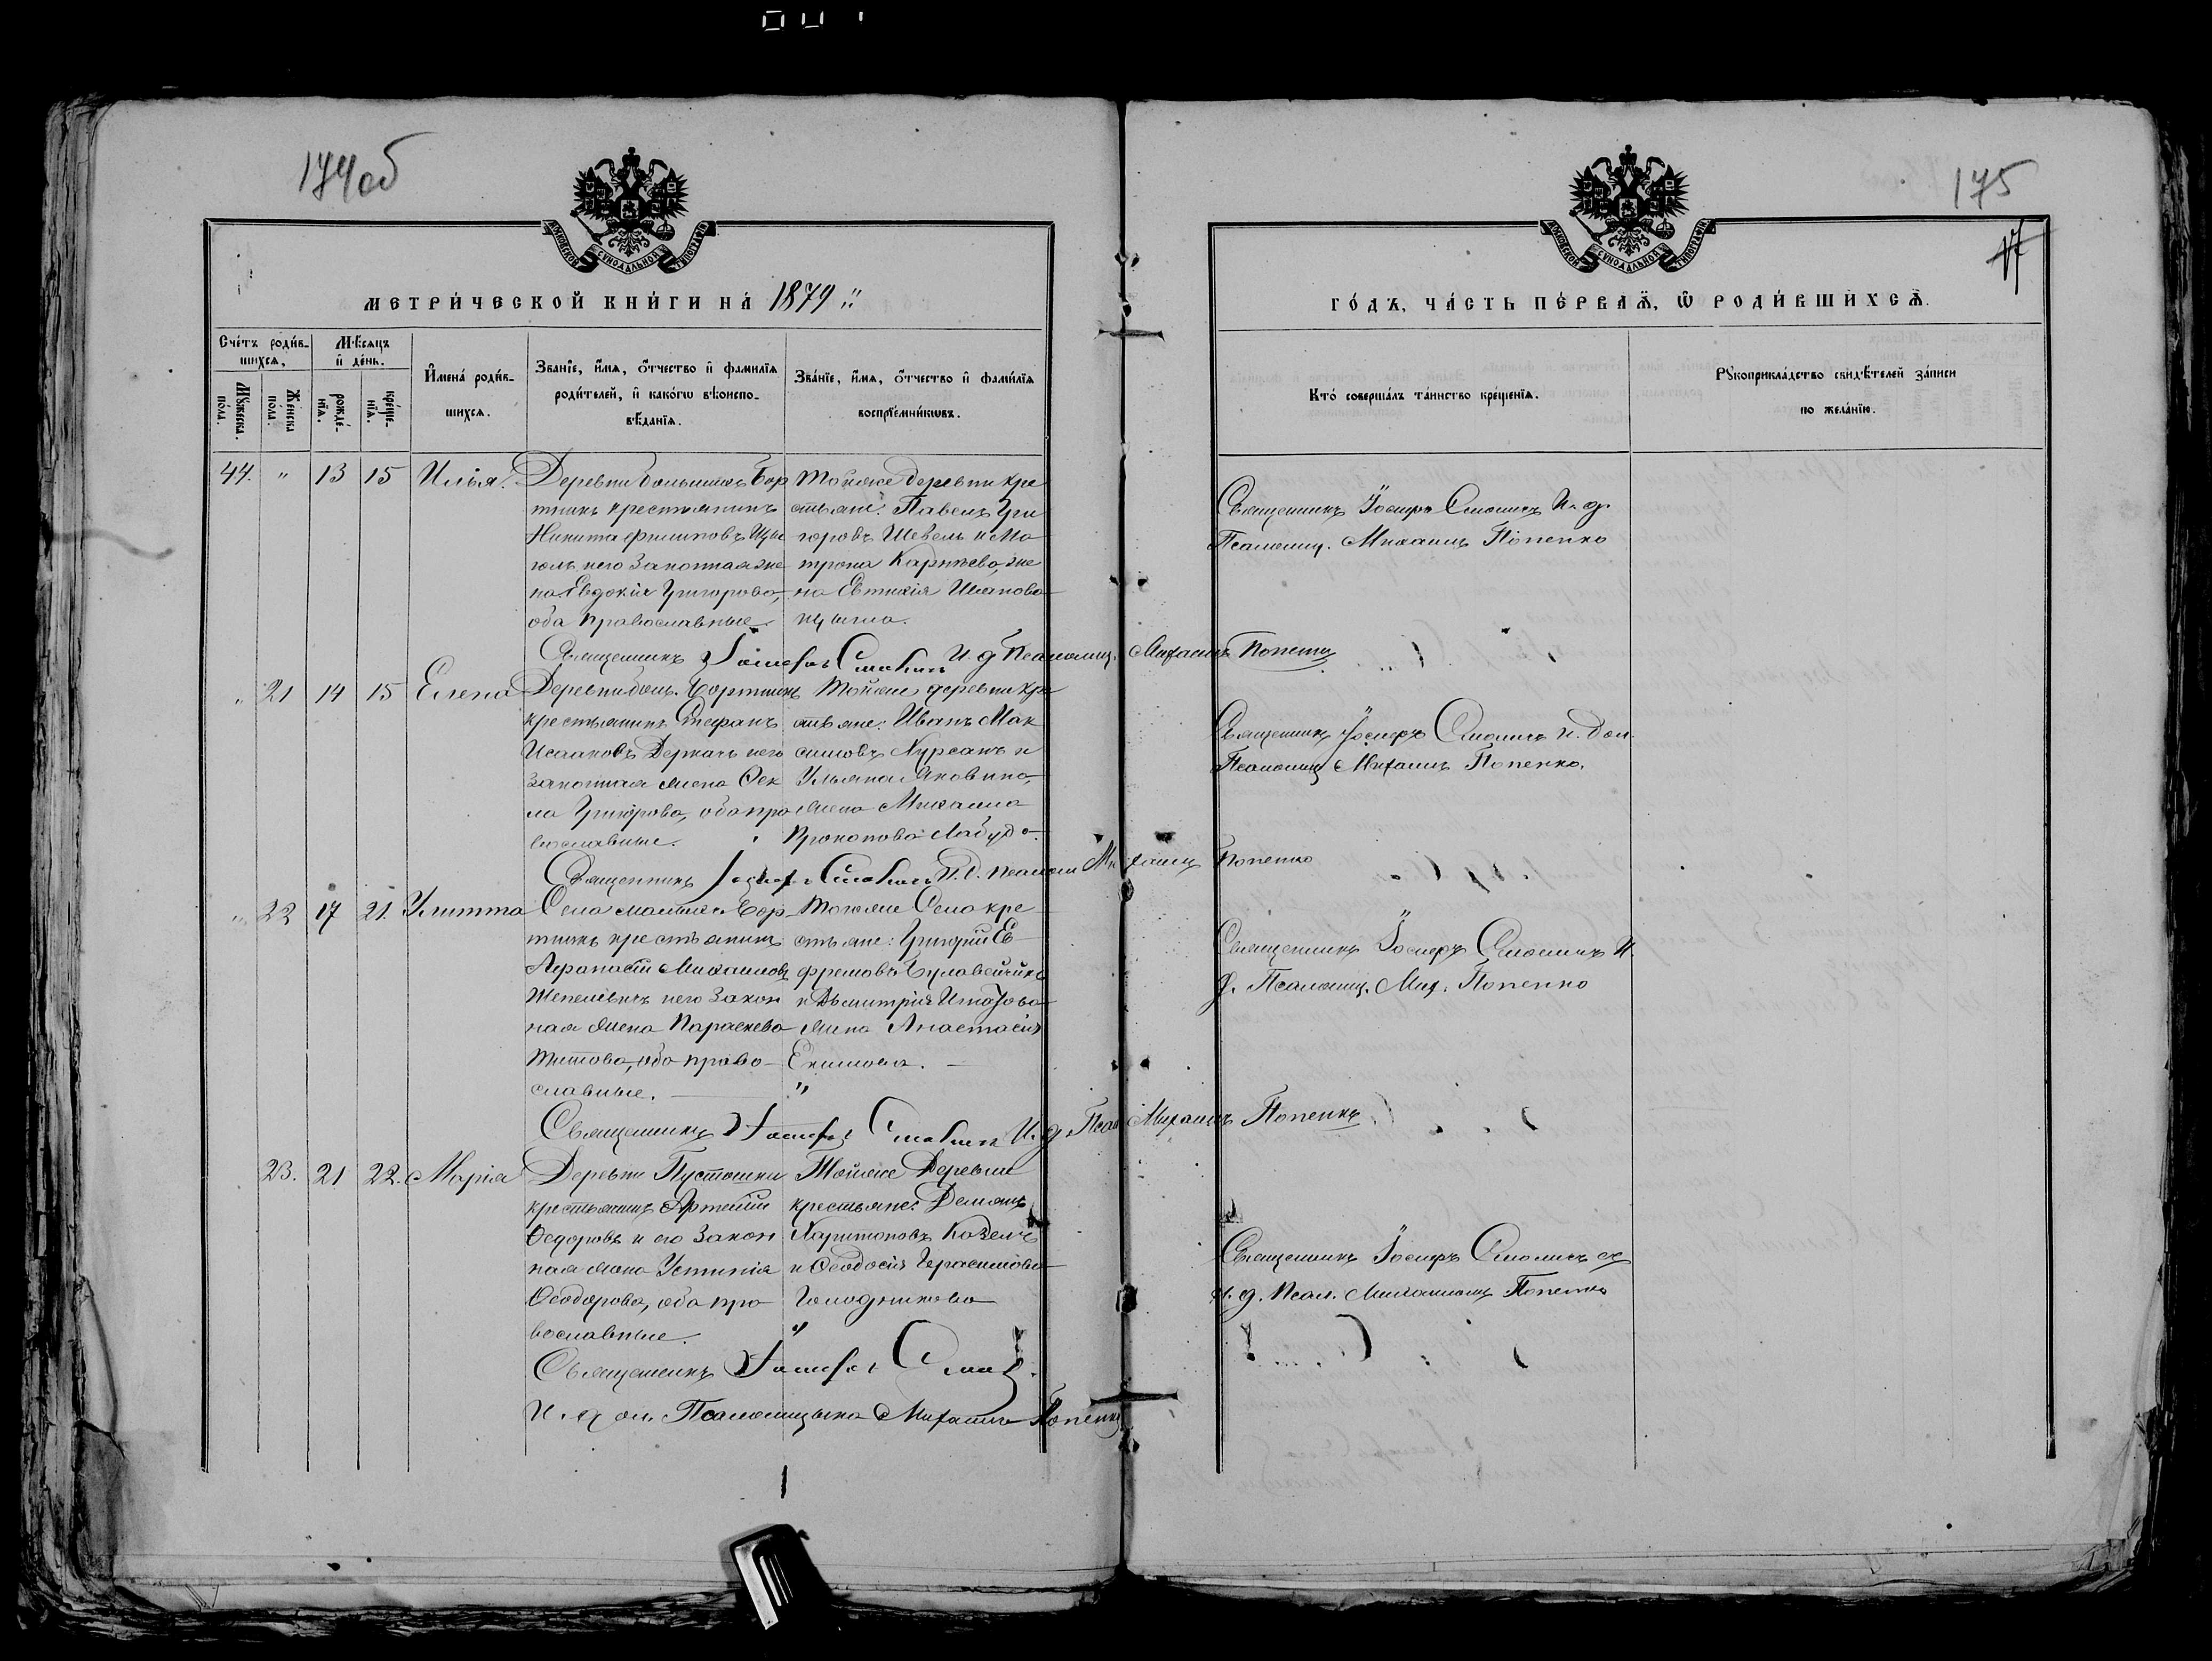 174об
175
17
МОСКОВСКОЙ СѴНОДАЛЬНОЙ ТИПОГРАФІИ
МОСКОВСКОЙ СѴНОДАЛЬНОЙ ТИПОГРАФІИ
МЕТРИ́ЧЕСКОЙ КНИ́ГИ НА́ 1879
ГО́ДЪ, ЧА́СТЬ ПЕ́РВАѦ, Ѽ РОДИ́ВШИХСѦ.
Сче́тъ роди́в-
шихсѧ,
Мꙋжеска. по́ла.
Же́нска по́ла.
Мѣ́сѧцъ
и҆ де́нь.
рожде́-
нїѧ.
креще́-
нїѧ.
И҆мена̀ роди́в-
шихсѧ.
Зва́нїе, и҆́мѧ, ѻ҆́тчество и҆ фами́лїѧ
роди́телей, и҆ како́гѡ вѣроиспо-
вѣ́данїѧ.
Зва́нїе, и҆́мѧ, ѻ҆́тчество и҆ фами́лїѧ
воспрїе́мникѡвъ.
Кто̀ соверша́лъ та́инство креще́нїѧ.
Рꙋкоприкла́дство свидѣ́телей за́писи
по жела́нїю.
44. " 13 15 Илья.
Деревни большихъ Бор
тникъ крестьянинъ
Никита Филиповъ
и его Законная же
на Евдокія Григорова,
оба православные.
Тойже деревни кре
стьяне: Павелъ Гри
горовъ Шевель и Ма
трона Карпѣева, же
на Евтихія Иванова
Священникъ Іосифъ Смоличъ И. д.
Псаломщ. Михаилъ Попенко
Священникъ Іосифъ Смоличъ И. д. Псаломщ. Михаилъ Попенко
" 21 14 15 Елена
Деревни бол. Бортникъ
крестьянинъ Стефанъ
Исааковъ Деркачъ и его
законная жена Фек
ла Григорова, оба пра
вославные.
Тойже деревни кре
стьяне: Иванъ Мак
симовъ Хурсанъ и
Ульяна Яковина,
жена Михаила
Прокопова Лабуда.
Священникъ Іосифъ Смоличъ И. дол.
Псаломщ. Михаилъ Попенко.
Священникъ Іосифъ Смоличъ И. д. Псаломщ. Михаилъ Попенко
" 22 17 21 Улитта
Села малыхъ Бор
тникъ крестьянинъ
Афанасій Михаиловъ
Шепелевичъ и его Закон
ная жена Параскева
Титова, оба право-
славные.
Тогоже Села кре
стьяне: Григорій Ев
фремовъ Булавейчикъ
и Дьмитрія Игнатова
жена Анастасія
Екимова.
"
Священникъ Іосифъ Смоличъ И.
д. Псаломщ. Мих. Попенко
Священникъ Іосифъ Смоличъ И. д. Псал. Михаилъ Попенко
23. 21 22. Марія
Деревни Пустошки
крестьянинъ Артемій
Федоровъ и его Закон
ная жена Устинія
Ѳеодорова, оба пра
вославные.
Тойже Деревни
крестьяне: Демянъ
Харитоновъ Козелъ
и Ѳеодосія Герасимова
Голодникова
"
Священникъ Іосифъ Смоличъ съ
и. д. Псал. Михаиломъ Попенко
Священникъ Іосифъ Смоличъ.
И. дол. Псаломщика Михаилъ Попенко